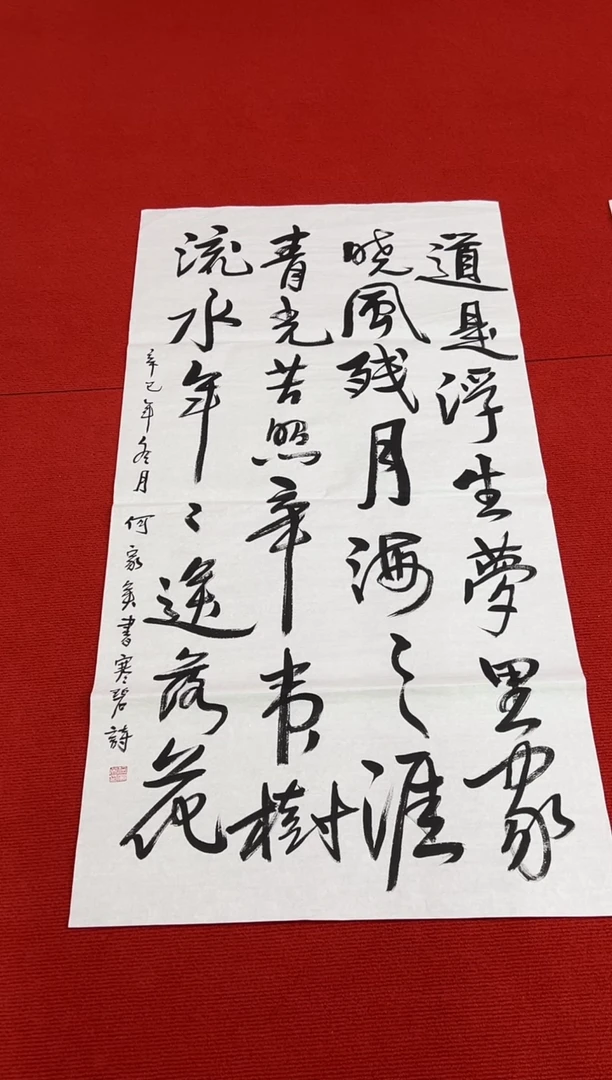 道是浮生夢里家
晓風残月海之涯
青光苦照辛夷樹
流水年〻送落花
辛巳年冬月 何家英書寒碧詩